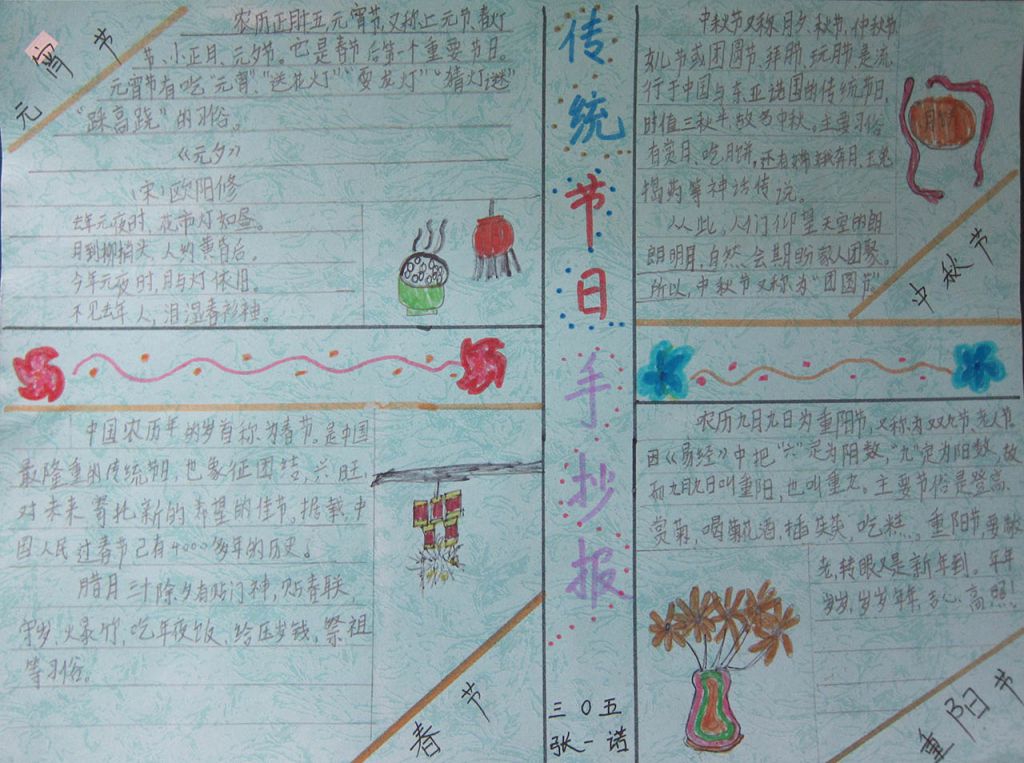 元宵节
农历正月十五元宵节,又称上元节、春灯
节、小正月、元夕节。它是春节后第一个重要节日。
元宵节有吃"元宵""送花灯""耍龙灯""猜灯谜"
"踩高跷"的习俗。
《元夕》
(宋)欧阳修
去年元夜时,花市灯如昼。
月到柳梢头,人约黄昏后。
今年元夜时,月与灯依旧。
不见去年人,泪湿春衫袖。
中国农历年的岁首称为春节。是中国
最隆重的传统节日,也象征团结,兴旺,
对未来寄托新的希望的佳节。据载,中
国人民过春节已有4000多年的历史。
腊月三十除夕有贴门神,贴春联,
守岁、火暴竹,吃年夜饭、给压岁钱,祭祖
等习俗。
春节
传统节日手抄报
三〇五
张一诺
中秋节又称月夕、秋节、仲秋节、
节或团圆节、拜月节、玩月节是流
行于中国与东亚诸国的传统节日,
时值三秋半,故名中秋。主要习俗
有赏月、吃月饼,还有嫦娥奔月、玉兔
捣药等神话传说。
从此,人们仰望天空的朗
朗明月,自然会期盼家人团聚。
所以,中秋节又称为"团圆节"
月饼
中秋节
农历九月九日为重阳节,又称为双九节,老人节
因《易经》中把"六"定为阴数,"九"定为阳数,故
而九月九日叫重阳,也叫重九。主要节俗是登高,
赏菊,喝菊花酒,插茱萸,吃糕。重阳节要敬
老,转眼又是新年到。年年
岁岁,岁岁年年,吉心高照!
重阳节